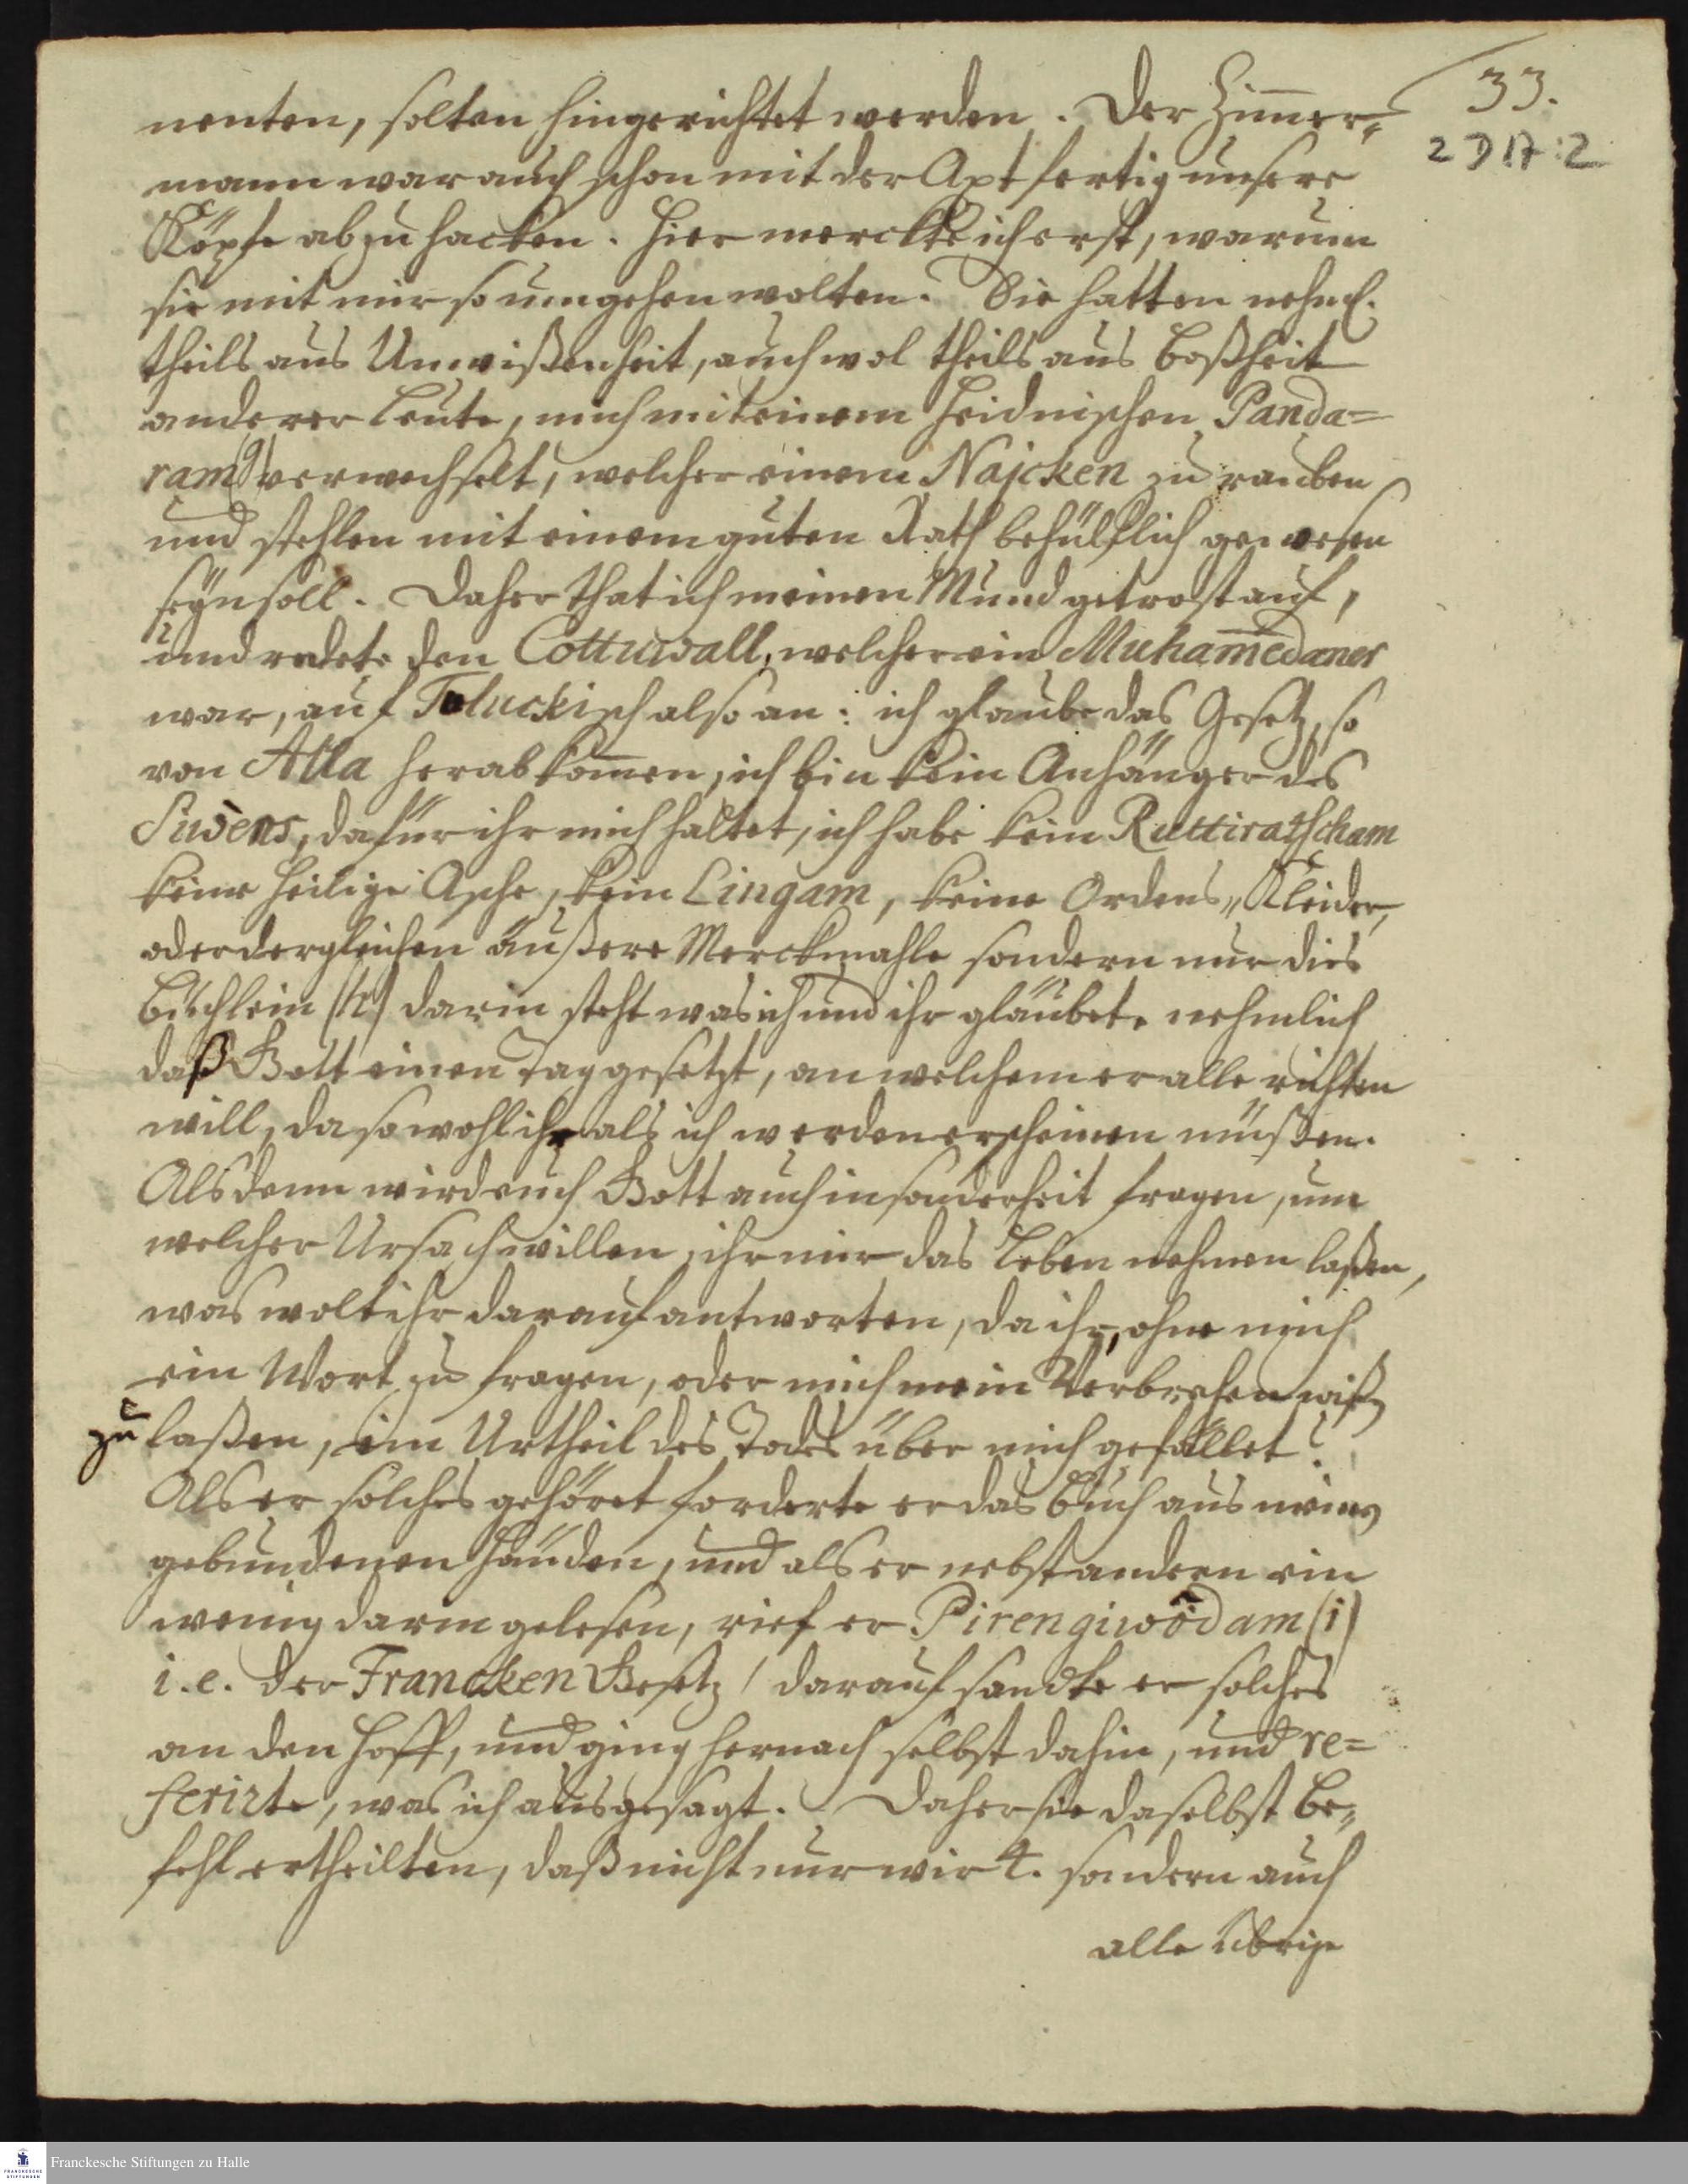 33.
2 D 17:2
nenten, solten hingerichtet werden. Der Zim̄er=
mann war auch schon mit der Axt fertig unsere
Köpfe abzuhacken. Hier merckte ich erst, warum
sie mit mir so umgehen wolten. Sie hatten nehml.
theils aus Unwißenheit, auch wol theils aus Boßheit
anderer Leute, mich mit einem heidnischen Panda=
ram (g) verwechselt, welcher einem Najcken zu rauben
und stehlen mit einem guten Rath behülflich gewesen
seÿn soll. Daher that ich meinen Mund getrost auf,
und redete den Cottuwall, welcher ein Muham̄edaner
war, auf Toluckisch also an: ich glaube das Gesetz, so
von Alla herabkom̄en, ich bin kein Anhänger des
Suvens, dafür ihr mich haltet, ich habe kein Ruttiratscham
keine heilige Asche, kein Lingam, keine Ordens„Kleider,
oder dergleichen äußere Merckmahle sondern nur dies
Büchlein (h) darin steht was ich und ihr gläubet, nehmlich
daß Gott einen Tag gesetzt, an welchem er alle richten
will, da sowohl ihr als ich werden erscheinen müßen.
Alsdenn wird euch Gott auch insonderheit fragen, um
welcher Ursach willen, ihr mir das Leben nehmen laßen,
was wolt ihr darauf antworten, da ihr, ohne mich
ein Wort zu fragen, oder mich mein Verbrechen wißen
zu laßen, ein Urtheil des Todes über mich gefället?
Als er solches gehöret forderte er das Buch aus meinen
gebundenen Händen, und als er nebst andern ein
wenig darin gelesen, rief er Pirengiwödam (i)
i. e. der Francken Gesetz! darauf sandte er solches
an den Hoff, und ging hernach selbst dahin, und re=
ferirte, was ich ausgesagt. Daher sie daselbst Be„
fehl ertheilten, daß nicht nur wir 4. sondern auch
alle übrige
Franckesche Stiftungen zu Halle
FRANCKESCHE
STIFTUNGEN